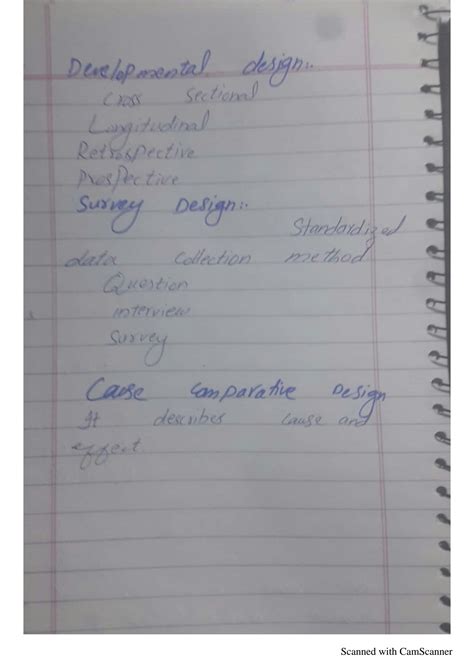 Developmental design:.
Cross Sectional
Longitudinal
Retrospective
Prospective
Survey Design:.
Standardized
data Collection method
Question
interview
Survey
Cause Comparative Design
It describes cause and
effect.
Scanned with CamScanner